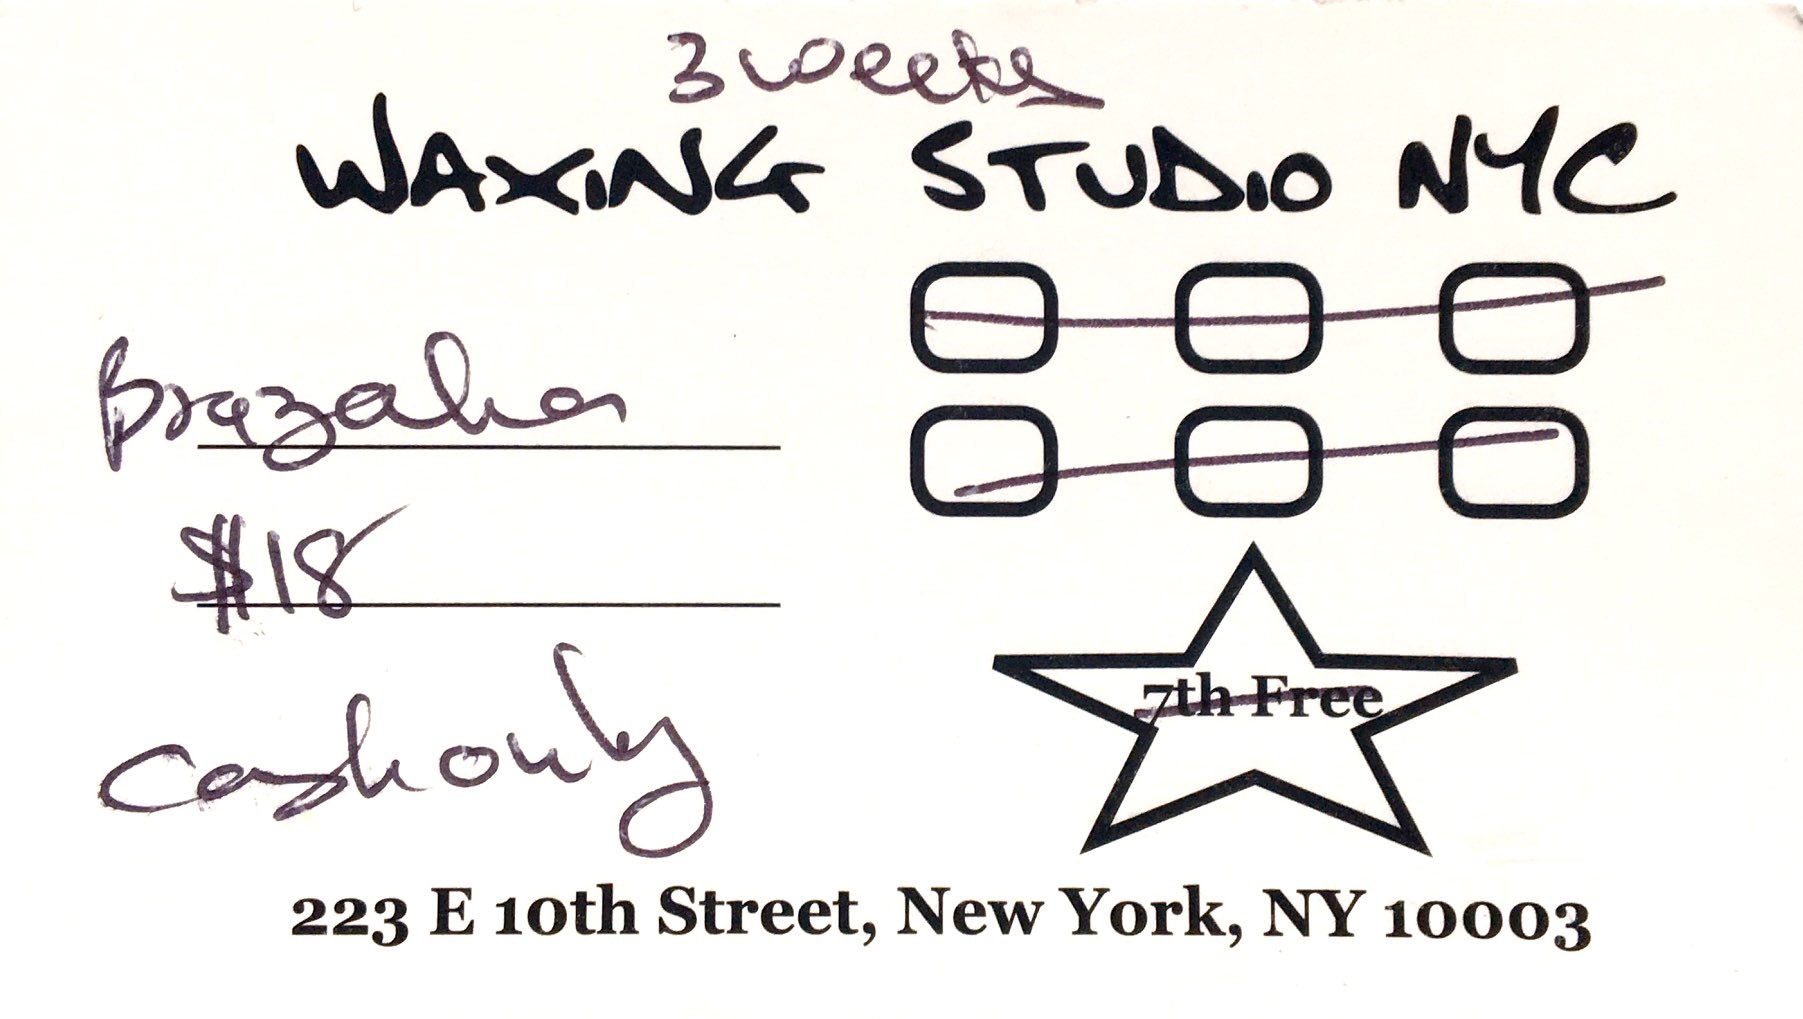 3 weeks
WAXING STUDIO NYC
$18
Cash only
7th Free
223 E 10th Street, New York, NY 10003